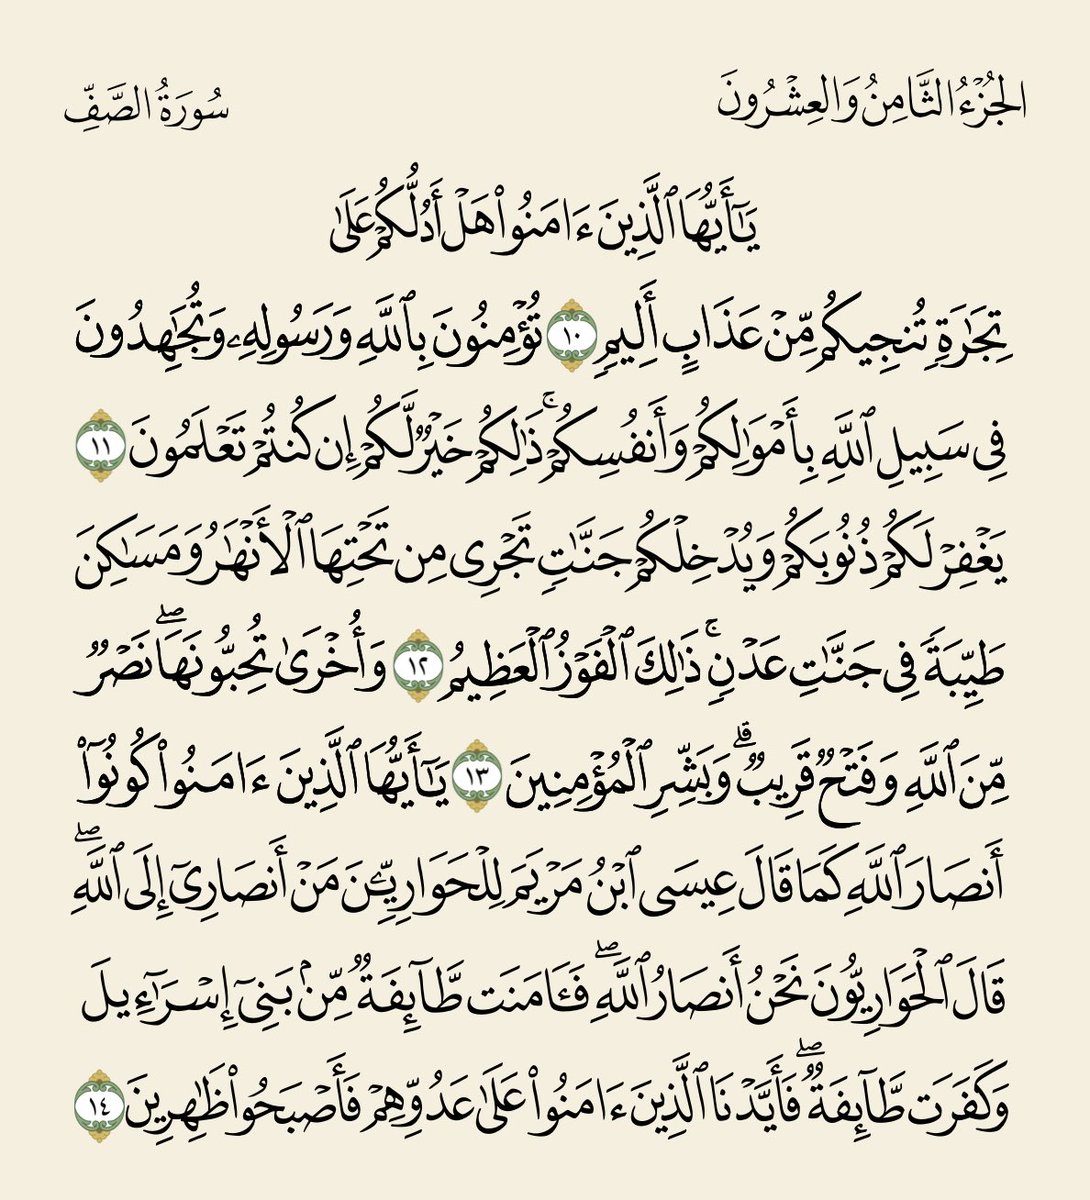 الجُزْءُ الثَّامِنُ وَالعِشْرُونَ
سُورَةُ الصَّفِّ
يَٰٓأَيُّهَا ٱلَّذِينَ ءَامَنُوا۟ هَلْ أَدُلُّكُمْ عَلَىٰ
تِجَٰرَةٍ تُنجِيكُم مِّنْ عَذَابٍ أَلِيمٍ ١٠ تُؤْمِنُونَ بِٱللَّهِ وَرَسُولِهِۦ وَتُجَٰهِدُونَ
فِى سَبِيلِ ٱللَّهِ بِأَمْوَٰلِكُمْ وَأَنفُسِكُمْ ۚ ذَٰلِكُمْ خَيْرٌ لَّكُمْ إِن كُنتُمْ تَعْلَمُونَ ١١
يَغْفِرْ لَكُمْ ذُنُوبَكُمْ وَيُدْخِلْكُمْ جَنَّٰتٍ تَجْرِى مِن تَحْتِهَا ٱلْأَنْهَٰرُ وَمَسَٰكِنَ
طَيِّبَةً فِى جَنَّٰتِ عَدْنٍ ۚ ذَٰلِكَ ٱلْفَوْزُ ٱلْعَظِيمُ ١٢ وَأُخْرَىٰ تُحِبُّونَهَا ۖ نَصْرٌ
مِّنَ ٱللَّهِ وَفَتْحٌ قَرِيبٌ ۗ وَبَشِّرِ ٱلْمُؤْمِنِينَ ١٣ يَٰٓأَيُّهَا ٱلَّذِينَ ءَامَنُوا۟ كُونُوٓا۟
أَنصَارَ ٱللَّهِ كَمَا قَالَ عِيسَى ٱبْنُ مَرْيَمَ لِلْحَوَارِيِّۦنَ مَنْ أَنصَارِىٓ إِلَى ٱللَّهِ ۖ
قَالَ ٱلْحَوَارِيُّونَ نَحْنُ أَنصَارُ ٱللَّهِ ۖ فَـَٔامَنَت طَّآئِفَةٌ مِّنۢ بَنِىٓ إِسْرَٰٓءِيلَ
وَكَفَرَت طَّآئِفَةٌ ۖ فَأَيَّدْنَا ٱلَّذِينَ ءَامَنُوا۟ عَلَىٰ عَدُوِّهِمْ فَأَصْبَحُوا۟ ظَٰهِرِينَ ١٤